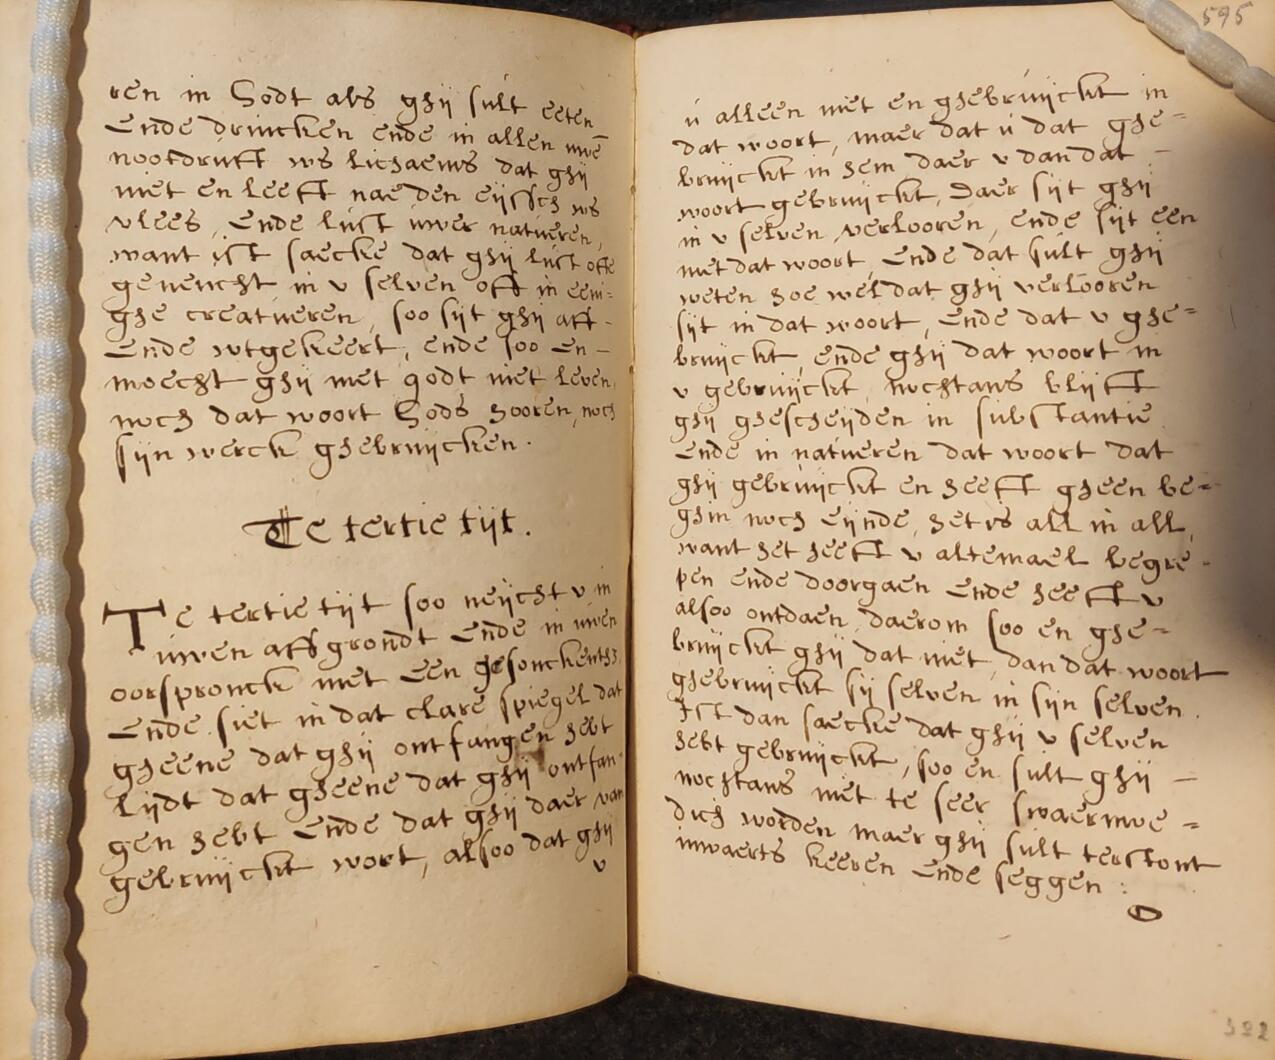 ren in Godt als ghij sult eeten
Ende drincken ende in allen uwē
nootdruft ws lichaems dat ghij
niet en leeft nae den eijsch ws
vlees, Ende lust uwer natueren,
want ist saecke dat ghij lust ofte
genucht in v selven oft in eeni=
ghe creatueren, soo sijt ghij aff-
Ende wtgekeert, ende soo en-
moecht ghij met godt niet leven,
noch dat woort Gods hooren, noch
sijn werck ghebruijcken.
Te tertie tijt.
Te tertie tijt soo neijcht v in
uwen affgrondt Ende in uwen
oorspronck met een gesonckenth:
Ende siet in dat clare spiegel dat
gheene dat ghij ontfangen hebt
lijdt dat gheene dat ghij ontfan-
gen hebt Ende dat ghij daer van
gebruijckt wort, alsoo dat ghij
v
595
ú alleen niet en ghebruijckt in
dat woort, maer dat ú dat ghe=
bruijckt in hem daer v dan dat -
woort gebruijckt, Daer sijt ghij
in v selven verlooren, ende sijt een
met dat woort, Ende dat sult ghij
weten hoe wel dat ghij verlooren
sijt in dat woort, Ende dat v ghe=
bruijckt, ende ghij dat woort in
v gebruijckt, nochtans blijft
ghij ghescheijden in substantie
Ende in natueren dat woort dat
ghij gebruijckt en heeft gheen be=
ghin noch Eijnde, het is all in all,
want het heeft v altemael begre=
pen ende doorgaen Ende heeft v
alsoo ontdaen, daerom soo en ghe=
bruijckt ghij dat niet, dan dat woort
ghebruijckt sij selven in sijn selven.
Ist dan saecke dat ghij v selven
hebt gebruijckt, soo en sult ghij -
nochtans niet te seer swaermoe=
dich worden maer ghij sult terstont
inwaerts keeren Ende seggen:
O
322